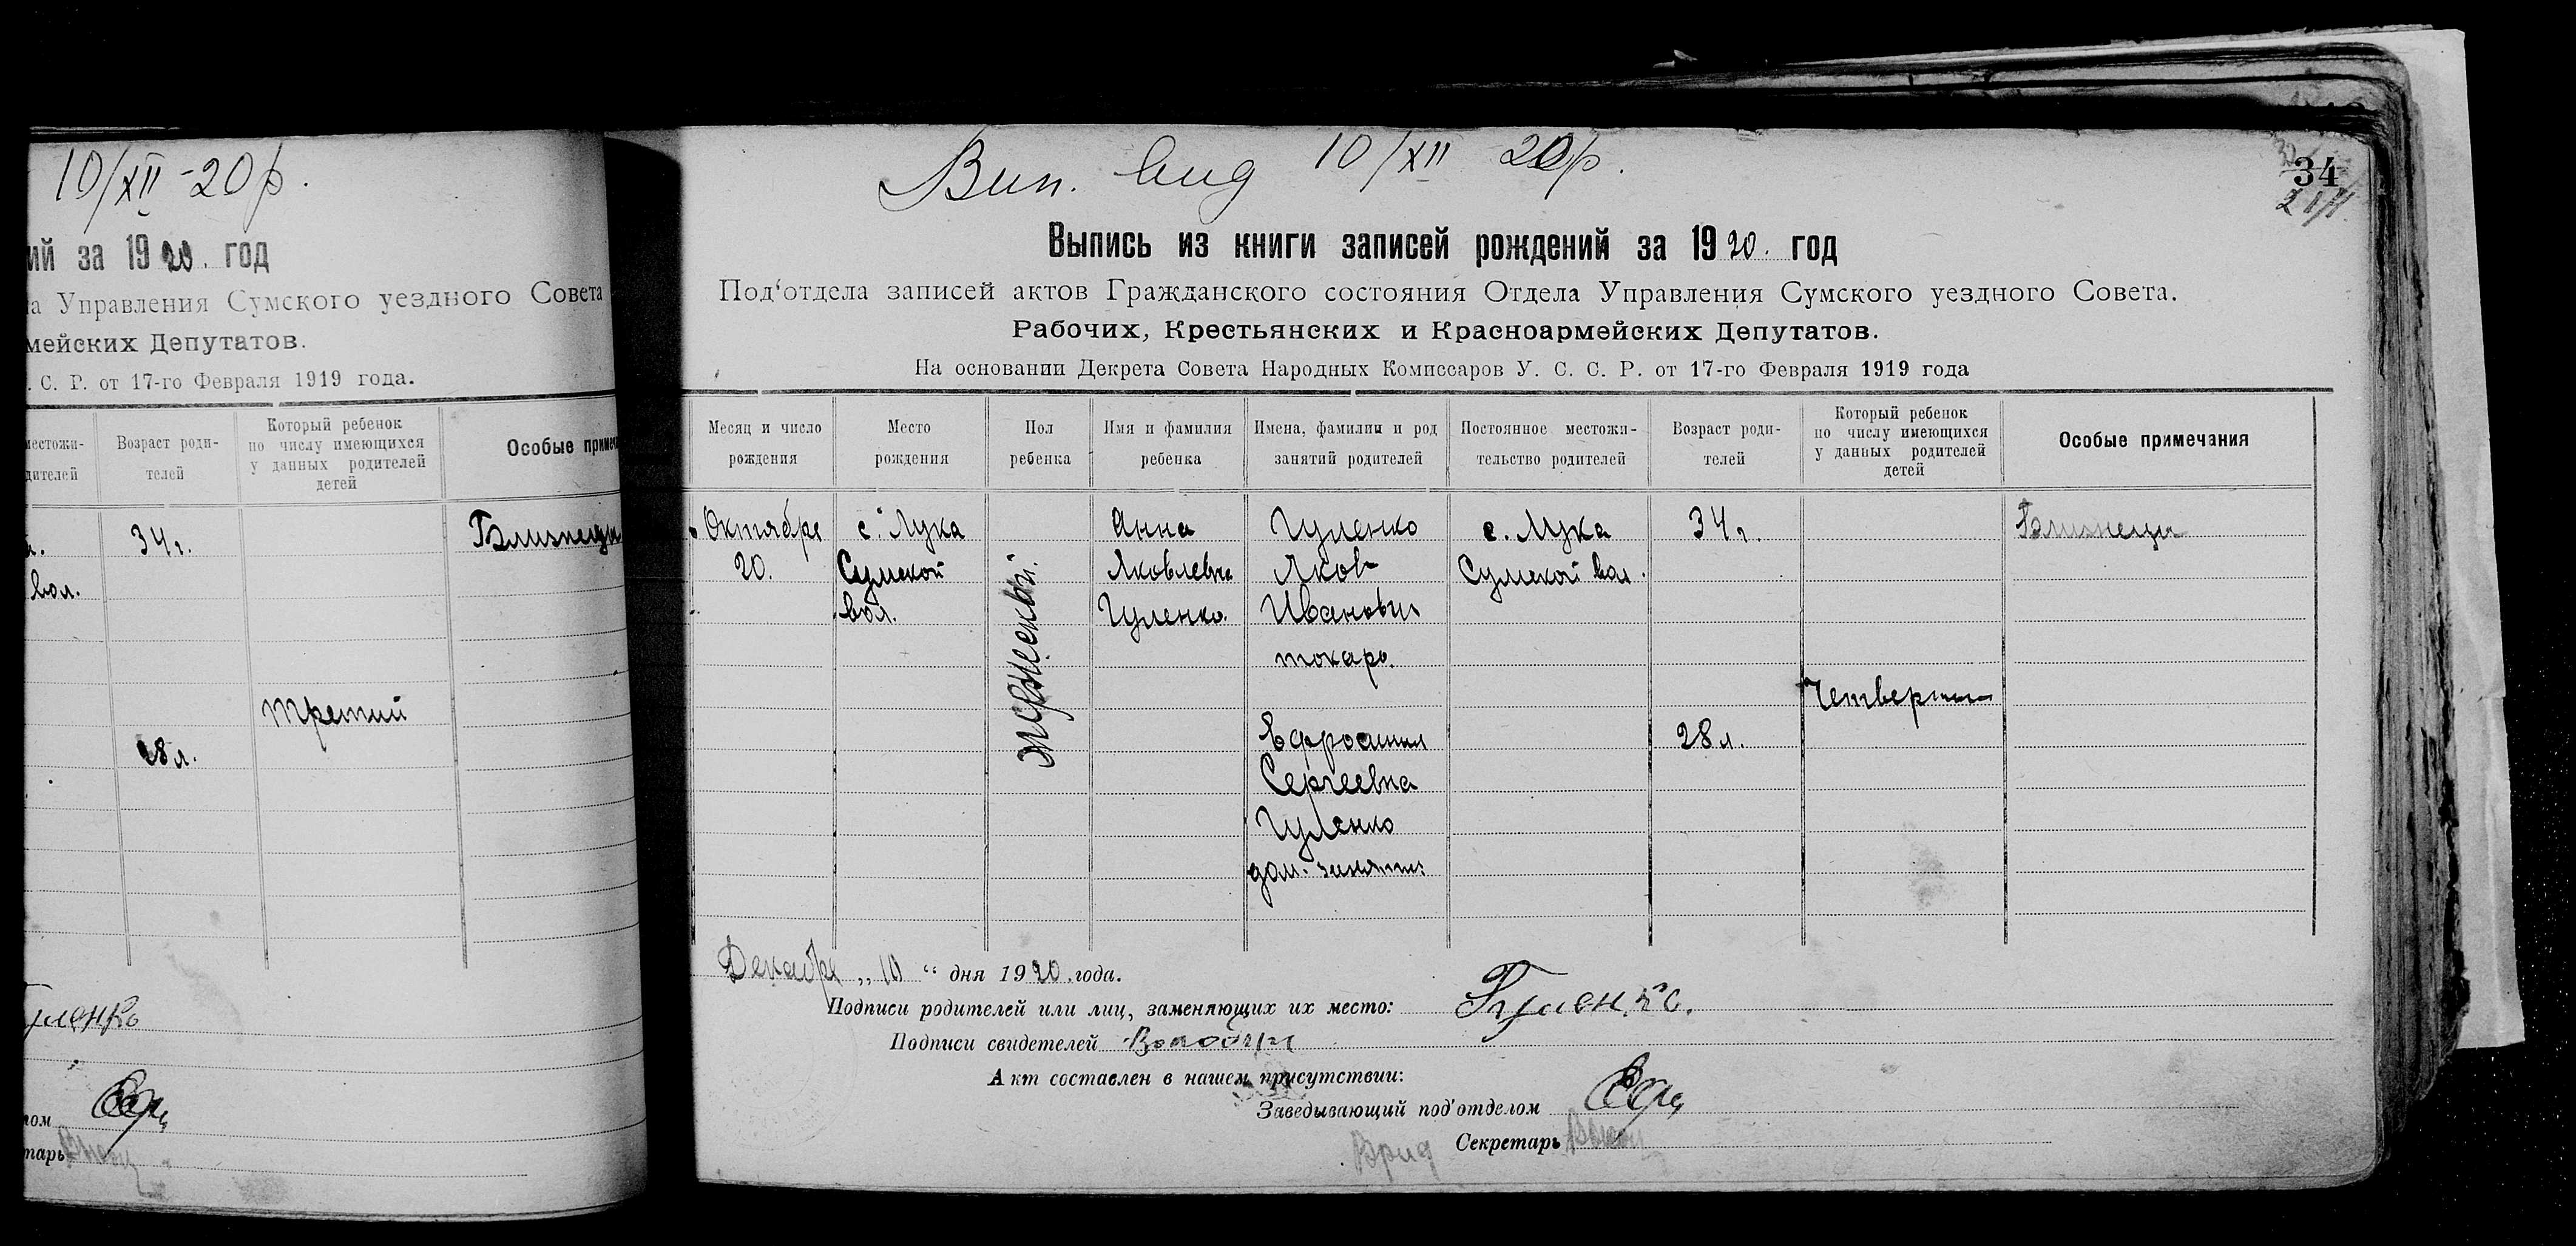 10/XII - 20 р.
ий за 1920. год
на Управления Сумского уездного Совета
мейских Депутатов.
. С. Р. от 17-го Февраля 1919 года.
местожи-
дителей
Возраст роди-
телей
Который ребенок
по числу имеющихся
у данных родителей
детей
Особые примеч
34 г.
Близнецы
вол.
третий
28 л.
уленко
лом
тарь
Вип. вид 10/XII 20 р.
34
Выпись из книги записей рождений за 1920. год
Под'отдела записей актов Гражданского состояния Отдела Управления Сумского уездного Совета.
Рабочих, Крестьянских и Красноармейских Депутатов.
На основании Декрета Совета Народных Комиссаров У. С. С. Р. от 17-го Февраля 1919 года
Месяц и число
рождения
Место
рождения
Пол
ребенка
Имя и фамилия
ребенка
Имена, фамилии и род
занятий родителей
Постоянное местожи-
тельство родителей
Возраст роди-
телей
Который ребенок
по числу имеющихся
у данных родителей
детей
Особые примечания
Октября
20.
с. Лука
Сумской
вол.
женский.
Анна
Яковлевна
Гуленко.
Гуленко
Яков
Иванович
токарь.
Ефросиния
Сергеевна
Гуленко
дом. занятия
с. Лука
Сумской вол.
34 г.
28 л.
Четвертый
Близнецы
Декабря „ 10 “ дня 1920. года.
Подписи родителей или лиц, заменяющих их место: Гуленко.
Подписи свидетелей
Акт составлен в нашем присутствии:
Заведывающий под'отделом
Врид Секретарь